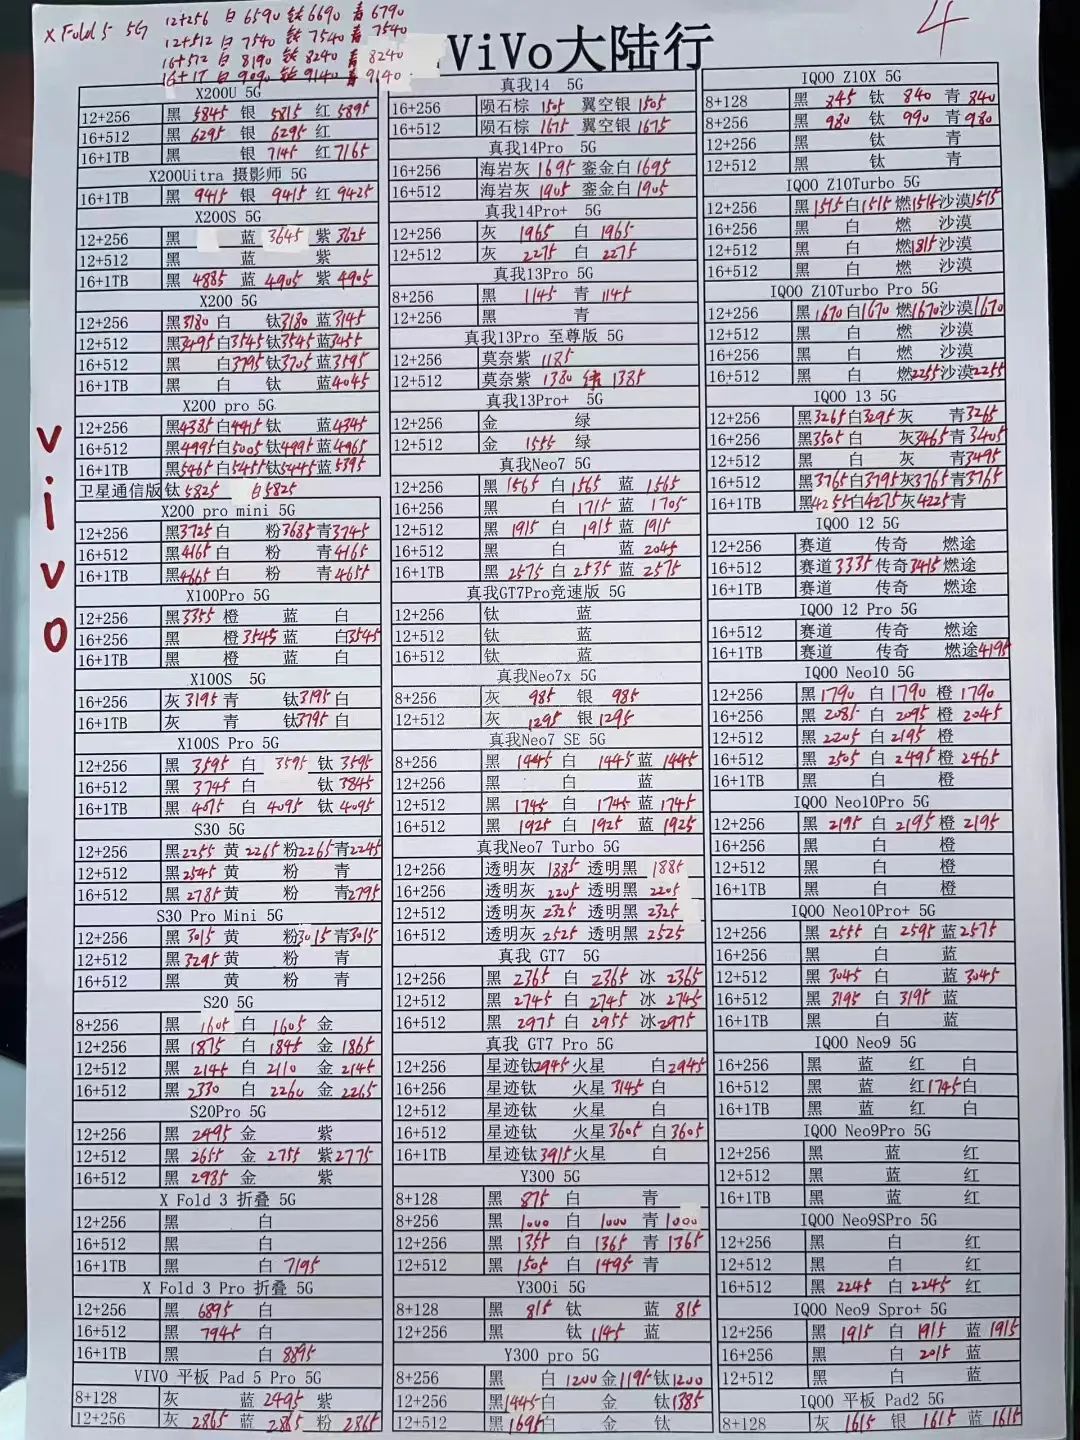 X Fold 5 5G 12+256 白6590 钛6690 青6790
12+512 白7540 钛7540 青7540
16+512 白8190 钛8240 青8240
16+1T 白9090 钛9140 青9140
ViVo大陆行
4
vivo
X200U 5G
12+256 黑 5845 银 5815 红 5895
16+512 黑 6295 银 6295 红
16+1TB 黑 银 7145 红 7165
X200Uitra 摄影师 5G
16+1TB 黑 9415 银 9415 红 9425
X200S 5G
12+256 黑 蓝 3645 紫 3625
12+512 黑 蓝 紫
16+1TB 黑 4885 蓝 4905 紫 4905
X200 5G
12+256 黑3180 白 钛3180 蓝3145
12+512 黑3495 白3545 钛3545 蓝3455
16+512 黑 白3795 钛3705 蓝3595
16+1TB 黑 白 钛 蓝4045
X200 pro 5G
12+256 黑4385 白4415 钛 蓝4345
16+512 黑4995 白5005 钛4995 蓝4965
16+1TB 黑5465 白5455 钛5445 蓝5395
卫星通信版 钛5825 白5825
X200 pro mini 5G
12+256 黑3725 白 粉3685 青3745
16+512 黑4165 白 粉 青4165
16+1TB 黑4665 白 粉 青4655
X100Pro 5G
12+256 黑3355 橙 蓝 白
16+256 黑 橙3545 蓝 白3545
16+1TB 黑 橙 蓝 白
X100S 5G
16+256 灰3195 青 钛3195 白
16+1TB 灰 青 钛3795 白
X100S Pro 5G
12+256 黑 3595 白 3595 钛 3595
16+512 黑 3745 白 钛 3845
16+1TB 黑 4075 白 4095 钛 4095
S30 5G
12+256 黑2255 黄 2265 粉2265 青2245
12+512 黑2545 黄 粉 青
16+512 黑2785 黄 粉 青2795
S30 Pro Mini 5G
12+256 黑 3015 黄 粉3015 青3015
12+512 黑3295 黄 粉 青
16+512 黑 黄 粉 青
S20 5G
8+256 黑 1605 白 1605 金
12+256 黑 1875 白 1845 金 1865
12+512 黑 2145 白 2110 金 2145
16+512 黑 2330 白 2260 金 2265
S20Pro 5G
12+256 黑 2495 金 紫
12+512 黑 2655 金 2755 紫2775
16+512 黑 2985 金 紫
X Fold 3 折叠 5G
12+256 黑 白
16+512 黑 白
16+1TB 黑 白 7195
X Fold 3 Pro 折叠 5G
12+256 黑 6895 白
16+512 黑 7945 白
16+1TB 黑 白 8895
VIVO 平板 Pad 5 Pro 5G
8+128 灰 蓝 2495 紫
12+256 灰 2865 蓝 2865 粉 2865
真我14 5G
16+256 陨石棕 1505 翼空银 1505
16+512 陨石棕 1675 翼空银 1675
真我14Pro 5G
16+256 海岩灰 1695 銮金白 1695
16+512 海岩灰 1905 銮金白 1905
真我14Pro+ 5G
12+256 灰 1965 白 1965
12+512 灰 2275 白 2275
真我13Pro 5G
8+256 黑 1145 青 1145
12+256 黑 青
真我13Pro 至尊版 5G
12+256 莫奈紫 1185
12+512 莫奈紫 1380 绿 1385
真我13Pro+ 5G
12+256 金 绿
12+512 金 1555 绿
真我Neo7 5G
12+256 黑 1565 白 1565 蓝 1565
16+256 黑 白 1715 蓝 1705
12+512 黑 1915 白 1915 蓝 1915
16+512 黑 白 蓝 2045
16+1TB 黑 2575 白 2535 蓝 2575
真我GT7Pro竞速版 5G
12+256 钛 蓝
12+512 钛 蓝
16+512 钛 蓝
真我Neo7x 5G
8+256 灰 985 银 985
12+512 灰 1295 银 1295
真我Neo7 SE 5G
8+256 黑 1445 白 1445 蓝 1445
12+256 黑 白 蓝
12+512 黑 1745 白 1745 蓝 1745
16+512 黑 1925 白 1925 蓝 1925
真我Neo7 Turbo 5G
12+256 透明灰 1885 透明黑 1885
16+256 透明灰 2205 透明黑 2205
12+512 透明灰 2325 透明黑 2325
16+512 透明灰 2525 透明黑 2525
真我 GT7 5G
12+256 黑 2365 白 2365 冰 2365
12+512 黑 2745 白 2745 冰 2745
16+512 黑 2975 白 2955 冰2975
真我 GT7 Pro 5G
12+256 星迹钛2945 火星 白2945
16+256 星迹钛 火星3145 白
12+512 星迹钛 火星 白
16+512 星迹钛 火星3605 白3605
16+1TB 星迹钛3915 火星 白
Y300 5G
8+128 黑 875 白 青
8+256 黑 1000 白 1000 青 1000
12+256 黑 1355 白 1365 青 1365
12+512 黑 1505 白 1495 青
Y300i 5G
8+128 黑 815 钛 蓝 815
12+256 黑 钛 1145 蓝
Y300 pro 5G
8+256 黑 白 1200 金1195 钛1200
12+256 黑1445 白 金 钛1385
12+512 黑1695 白 金 钛
IQOO Z10X 5G
8+128 黑 845 钛 840 青 840
8+256 黑 980 钛 990 青 980
12+256 黑 钛 青
12+512 黑 钛 青
IQOO Z10Turbo 5G
12+256 黑1515 白1515 燃1515 沙漠1515
16+256 黑 白 燃 沙漠
12+512 黑 白 燃1815 沙漠
16+512 黑 白 燃 沙漠
IQOO Z10Turbo Pro 5G
12+256 黑1670 白1670 燃1670 沙漠1670
12+512 黑 白 燃 沙漠
16+256 黑 白 燃 沙漠
16+512 黑 白 燃2255 沙漠2255
IQOO 13 5G
12+256 黑3265 白3295 灰 青3265
16+256 黑3505 白 灰3465 青3405
12+512 黑 白 灰 青3495
16+512 黑3765 白3795 灰3765 青3765
16+1TB 黑4255 白4275 灰4225 青
IQOO 12 5G
12+256 赛道 传奇 燃途
16+512 赛道 3335 传奇 3415 燃途
16+1TB 赛道 传奇 燃途
IQOO 12 Pro 5G
16+512 赛道 传奇 燃途
16+1TB 赛道 传奇 燃途4195
IQOO Neo10 5G
12+256 黑 1790 白 1790 橙 1790
16+256 黑 2085 白 2095 橙 2045
12+512 黑 2205 白 2195 橙
16+512 黑 2505 白 2495 橙 2465
16+1TB 黑 白 橙
IQOO Neo10Pro 5G
12+256 黑 2195 白 2195 橙 2195
16+256 黑 白 橙
12+512 黑 白 橙
16+1TB 黑 白 橙
IQOO Neo10Pro+ 5G
12+256 黑 2555 白 2595 蓝2575
16+256 黑 白 蓝
12+512 黑 3045 白 蓝 3045
16+512 黑 3195 白 3195 蓝
16+1TB 黑 白 蓝
IQOO Neo9 5G
16+256 黑 蓝 红 白
16+512 黑 蓝 红1745 白
16+1TB 黑 蓝 红 白
IQOO Neo9Pro 5G
12+256 黑 蓝 红
12+512 黑 蓝 红
16+1TB 黑 蓝 红
IQOO Neo9SPro 5G
12+256 黑 白 红
12+512 黑 白 红
16+512 黑 2245 白 2245 红
IQOO Neo9 Spro+ 5G
12+256 黑 1915 白 1915 蓝 1915
16+256 黑 白 2015 蓝
12+512 黑 白 蓝
IQOO 平板 Pad2 5G
8+128 灰 1615 银 1615 蓝 1615